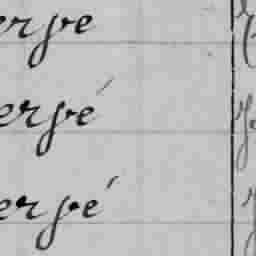 erpe
erpé
erpé